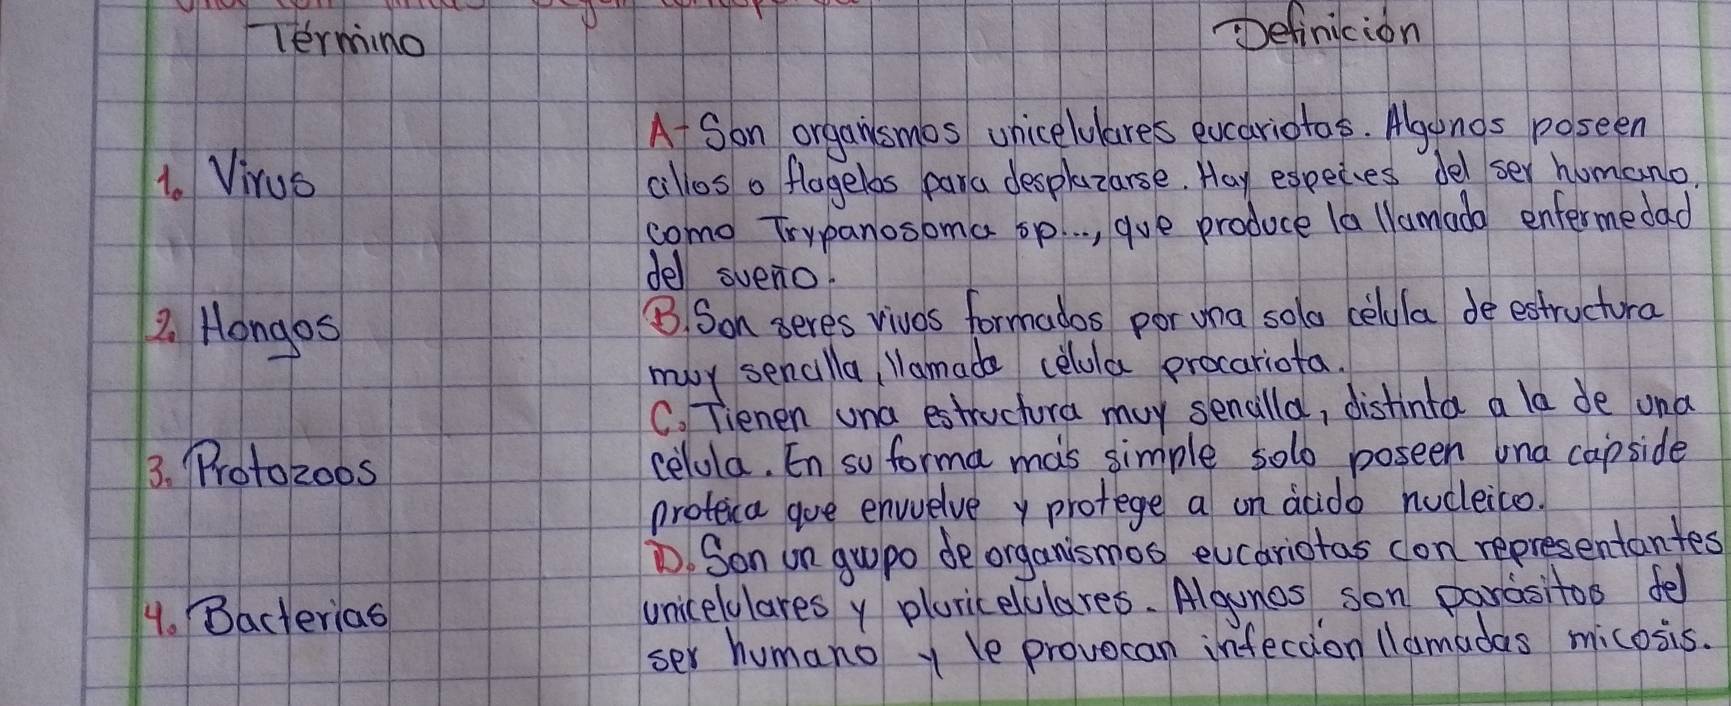 Término Definición
A- Son organismos unicelulares eucariotas. Algunos poseen
1. Virus cilios o flagelos para desplazarse. Hay especies del ser humano.
como Trypanosoma sp..., que produce la llamada enfermedad
del sueño.
2. Hongos B. Son seres vivos formados por una sola célula de estructura
muy sencilla, llamada célula procariota.
C. Tienen una estructura muy sencilla, distinta a la de una
3. Protozoos célula. En su forma más simple solo poseen una cápside
proteica que envuelve y protege a un ácido nucleico.
D. Son un grupo de organismos eucariotas con representantes
4. Bacterias unicelulares y pluricelulares. Algunos son parásitos del
ser humano y le provocan infección llamadas micosis.